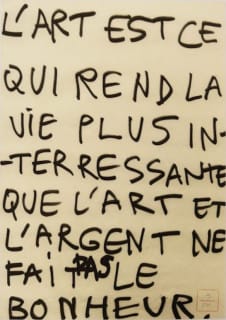 L'ART EST CE
QUI REND LA
ViE PLUS IN-
-TERRESSANTE
QUE L'ART ET
L'ARGENT NE
FAiT PAS LE
BONHEUR.